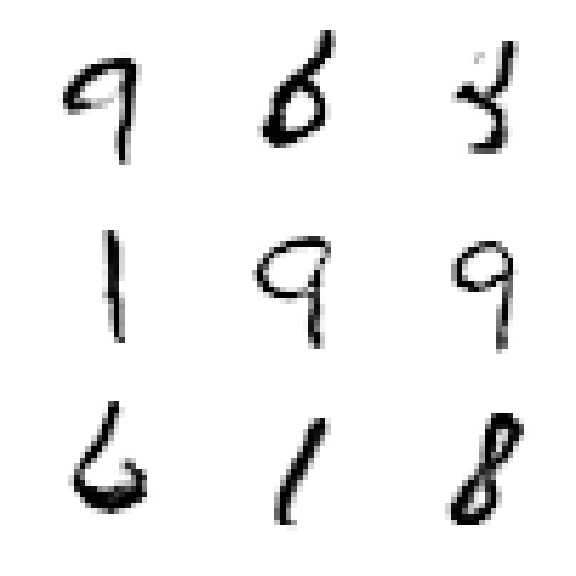 9 6 5
1 9 9
6 1 8